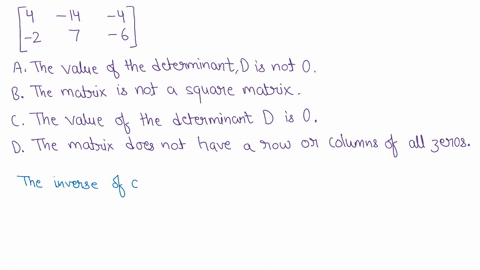 4 -14 -4
-2 7 -6
A. The value of the determinant, D is not 0.
B. The matrix is not a square matrix.
C. The value of the determinant D is 0.
D. The matrix does not have a row or columns of all zeros.
The inverse of c